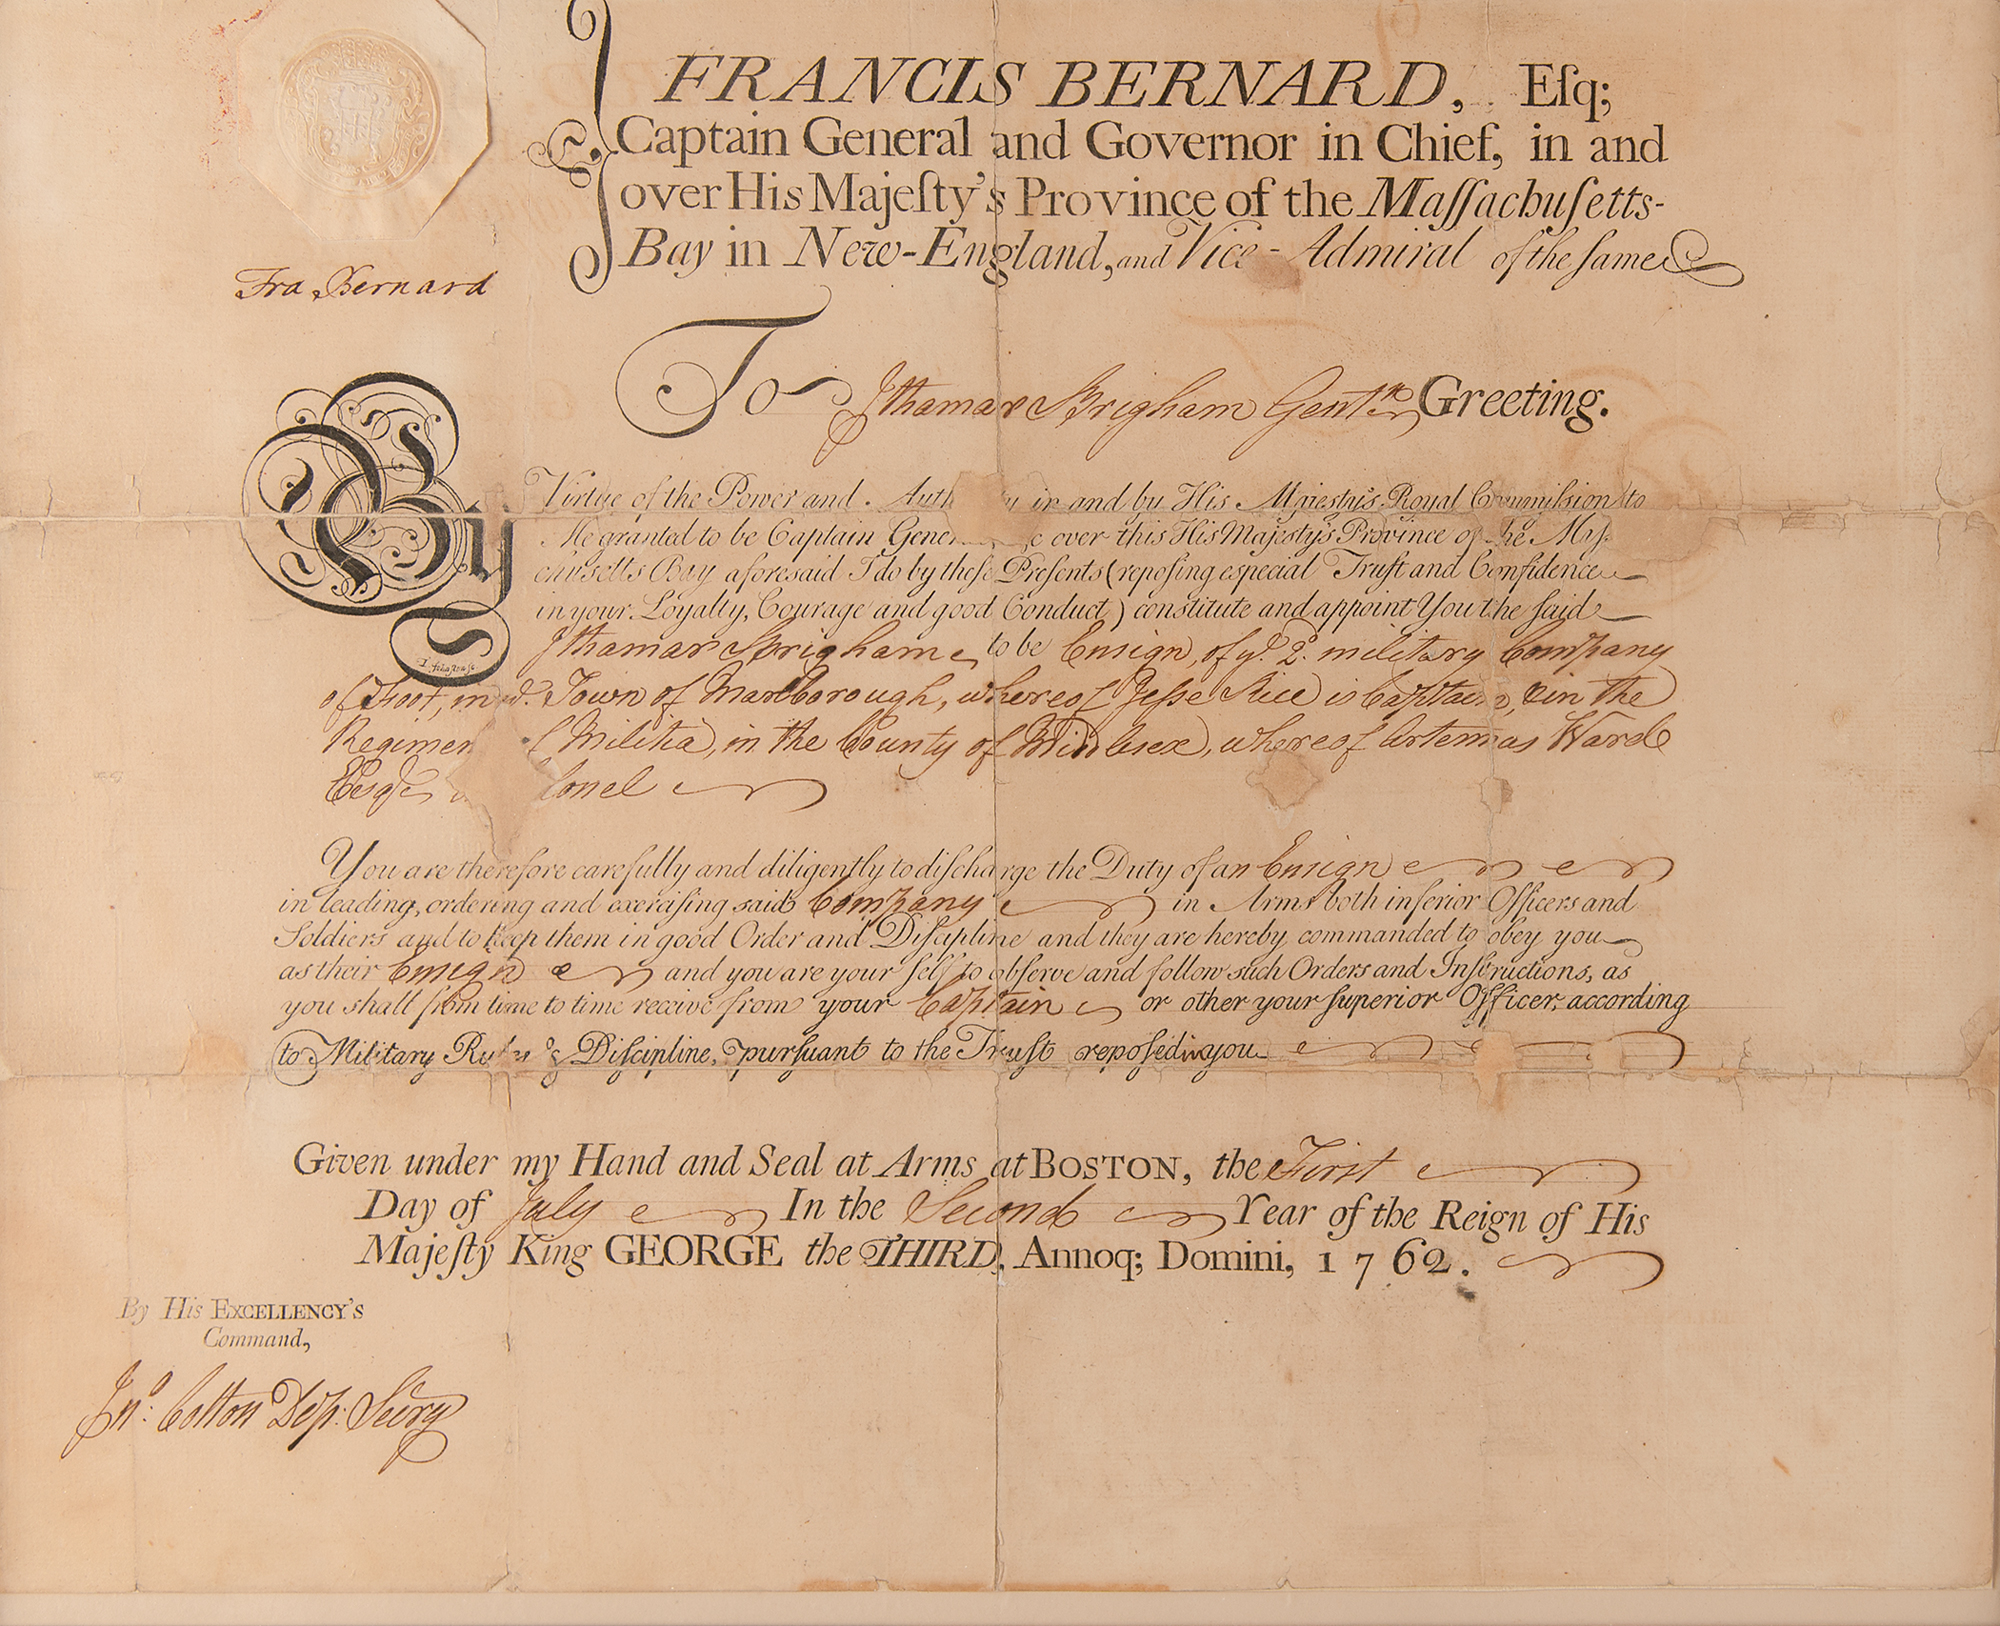 FRANCIS BERNARD, Eſq;
Captain General and Governor in Chief, in and
over His Majeſty's Province of the Maſſachuſetts-
Bay in New-England, and Vice-Admiral of the ſame
Fra Bernard
To Ithamar Brigham Gentⁿ Greeting.
By Virtue of the Power and Auth y in and by His Majesty's Royal Commiſsion to
Me granted to be Captain Gene over this His Majesty's Province of the Maſ
chusetts Bay aforesaid I do by theſe Preſents (repoſing especial Truſt and Confidence
in your Loyalty, Courage and good Conduct) constitute and appoint You the ſaid
Ithamar Brigham to be Ensign, of yᵉ 2ᵈ military Company
of Foot, in yᵉ Town of Marlborough, whereof Jeſse Rice is Captain, & in the
Regimen f Militia, in the County of Middlesex, whereof Artemas Ward
Esqr lonel
You are therefore carefully and diligently to diſcharge the Duty of an Ensign
in leading, ordering and exerciſing said Company in Arms both inferior Officers and
Soldiers and to keep them in good Order and Diſcipline and they are hereby commanded to obey you
as their Ensign and you are your ſelf to obſerve and follow such Orders and Inſtructions, as
you shall from time to time receive from your Captain or other your ſuperior Officer, according
to Military Rules & Diſcipline, purſuant to the Truſt repoſed in you
Given under my Hand and Seal at Arms at BOSTON, the First
Day of July In the Second Year of the Reign of His
Majeſty King GEORGE the THIRD, Annoq; Domini, 1762.
By His EXCELLENCY'S
Command,
Jnº. Cotton Dep. Secry